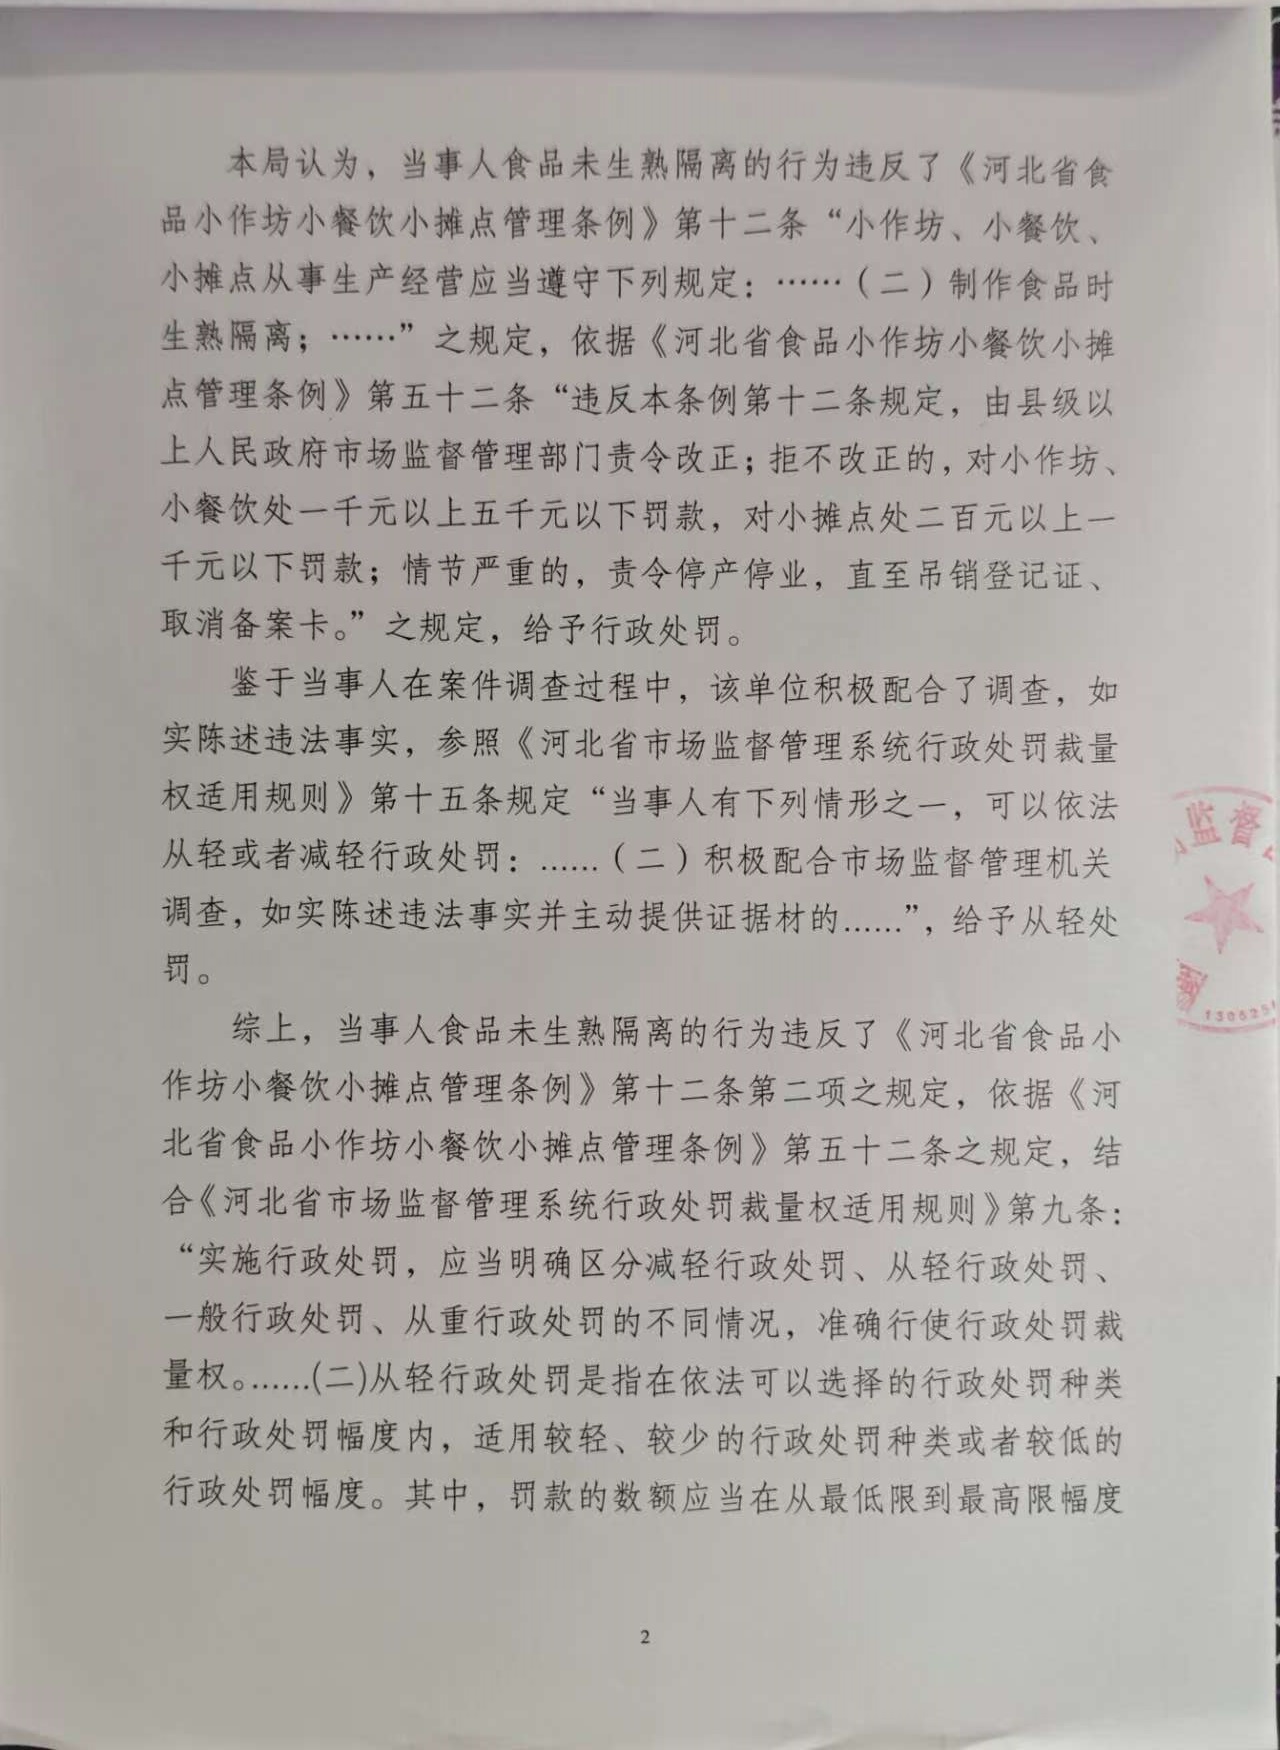 本局认为，当事人食品未生熟隔离的行为违反了《河北省食
品小作坊小餐饮小摊点管理条例》第十二条“小作坊、小餐饮、
小摊点从事生产经营应当遵守下列规定：……（二）制作食品时
生熟隔离；……”之规定，依据《河北省食品小作坊小餐饮小摊
点管理条例》第五十二条“违反本条例第十二条规定，由县级以
上人民政府市场监督管理部门责令改正；拒不改正的，对小作坊、
小餐饮处一千元以上五千元以下罚款，对小摊点处二百元以上一
千元以下罚款；情节严重的，责令停产停业，直至吊销登记证、
取消备案卡。”之规定，给予行政处罚。
鉴于当事人在案件调查过程中，该单位积极配合了调查，如
实陈述违法事实，参照《河北省市场监督管理系统行政处罚裁量
权适用规则》第十五条规定“当事人有下列情形之一，可以依法
从轻或者减轻行政处罚：……（二）积极配合市场监督管理机关
调查，如实陈述违法事实并主动提供证据材的……”，给予从轻处
罚。
综上，当事人食品未生熟隔离的行为违反了《河北省食品小
作坊小餐饮小摊点管理条例》第十二条第二项之规定，依据《河
北省食品小作坊小餐饮小摊点管理条例》第五十二条之规定，结
合《河北省市场监督管理系统行政处罚裁量权适用规则》第九条：
“实施行政处罚，应当明确区分减轻行政处罚、从轻行政处罚、
一般行政处罚、从重行政处罚的不同情况，准确行使行政处罚裁
量权。……(二)从轻行政处罚是指在依法可以选择的行政处罚种类
和行政处罚幅度内，适用较轻、较少的行政处罚种类或者较低的
行政处罚幅度。其中，罚款的数额应当在从最低限到最高限幅度
监督
2